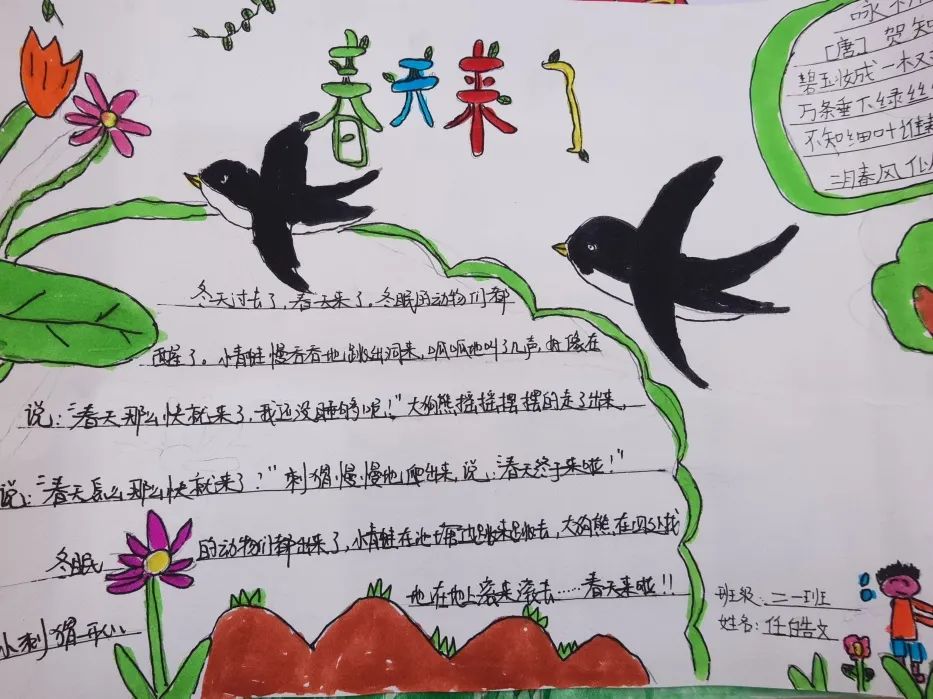 春天来了
咏柳
[唐] 贺知
碧玉妆成一树
万条垂下绿丝
不知细叶谁裁
二月春风似
冬天过去了，春天来了。冬眠的动物们都
醒了。小青蛙慢吞吞地跳出洞来，呱呱地叫了几声，好像在
说：“春天那么快就来了，我还没睡够呢！”大狗熊摇摇摆摆的走了出来，
说：“春天怎么那么快就来了？”刺猬慢慢地爬出来，说：“春天终于来啦！”
冬眠的动物们都出来了，小青蛙在池塘边跳来跳去，大狗熊在四处找
小刺猬开心地在地上滚来滚去……春天来啦！！
班级：二一班
姓名：任皓文